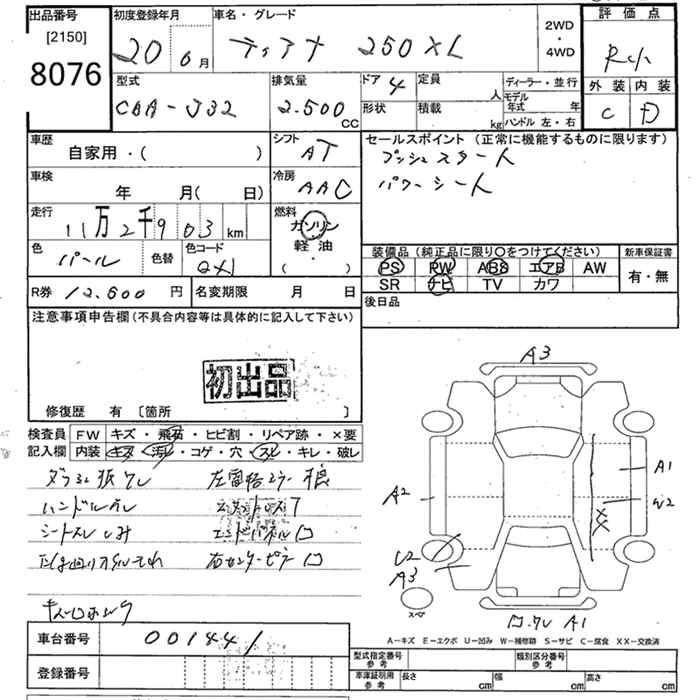 出品番号
[2150]
8076
初度登録年月
20 6月
車名・グレード
ティアナ 250XL
2WD
・
4WD
評価点
外装 内装
C D
型式
CBA-J32
排気量
2.500 CC
ドア 4
定員 人
形状
積載 kg
ディーラー・並行
モデル年式 年
ハンドル 左・右
車歴
自家用・( )
シフト
AT
セールスポイント(正常に機能するものに限ります)
プッシュスタート
パワーシート
車検
年 月( 日)
冷房
AAC
走行
11万2千903km
燃料
ガソリン
軽油
( ・ )
色
パール
色替
色コード
QX1
装備品(純正品に限り○をつけてください)
新車保証書
PS PW ABS エアB AW
有・無
SR ナビ TV カワ
R券 12.500円
名変期限 月 日
後日品
注意事項申告欄(不具合内容等は具体的に記入して下さい)
初出品
修復歴 有 [箇所 ]
検査員記入欄
FW キズ・飛石・ヒビ割・リペア跡・×要
内装 キズ・汚レ・コゲ・穴・スレ・キレ・破レ
ハンドルスレ
A3
A1
A2
W2
XX
U2
A3
スペア
A1
A-キズ E-エクボ U-凹み W-補修跡 S-サビ C-腐食 XX-交換済
車台番号 001441
登録番号
型式指定番号 参考
類別区分番号 参考
車庫証明用 参考 長さ cm 幅 cm 高さ cm